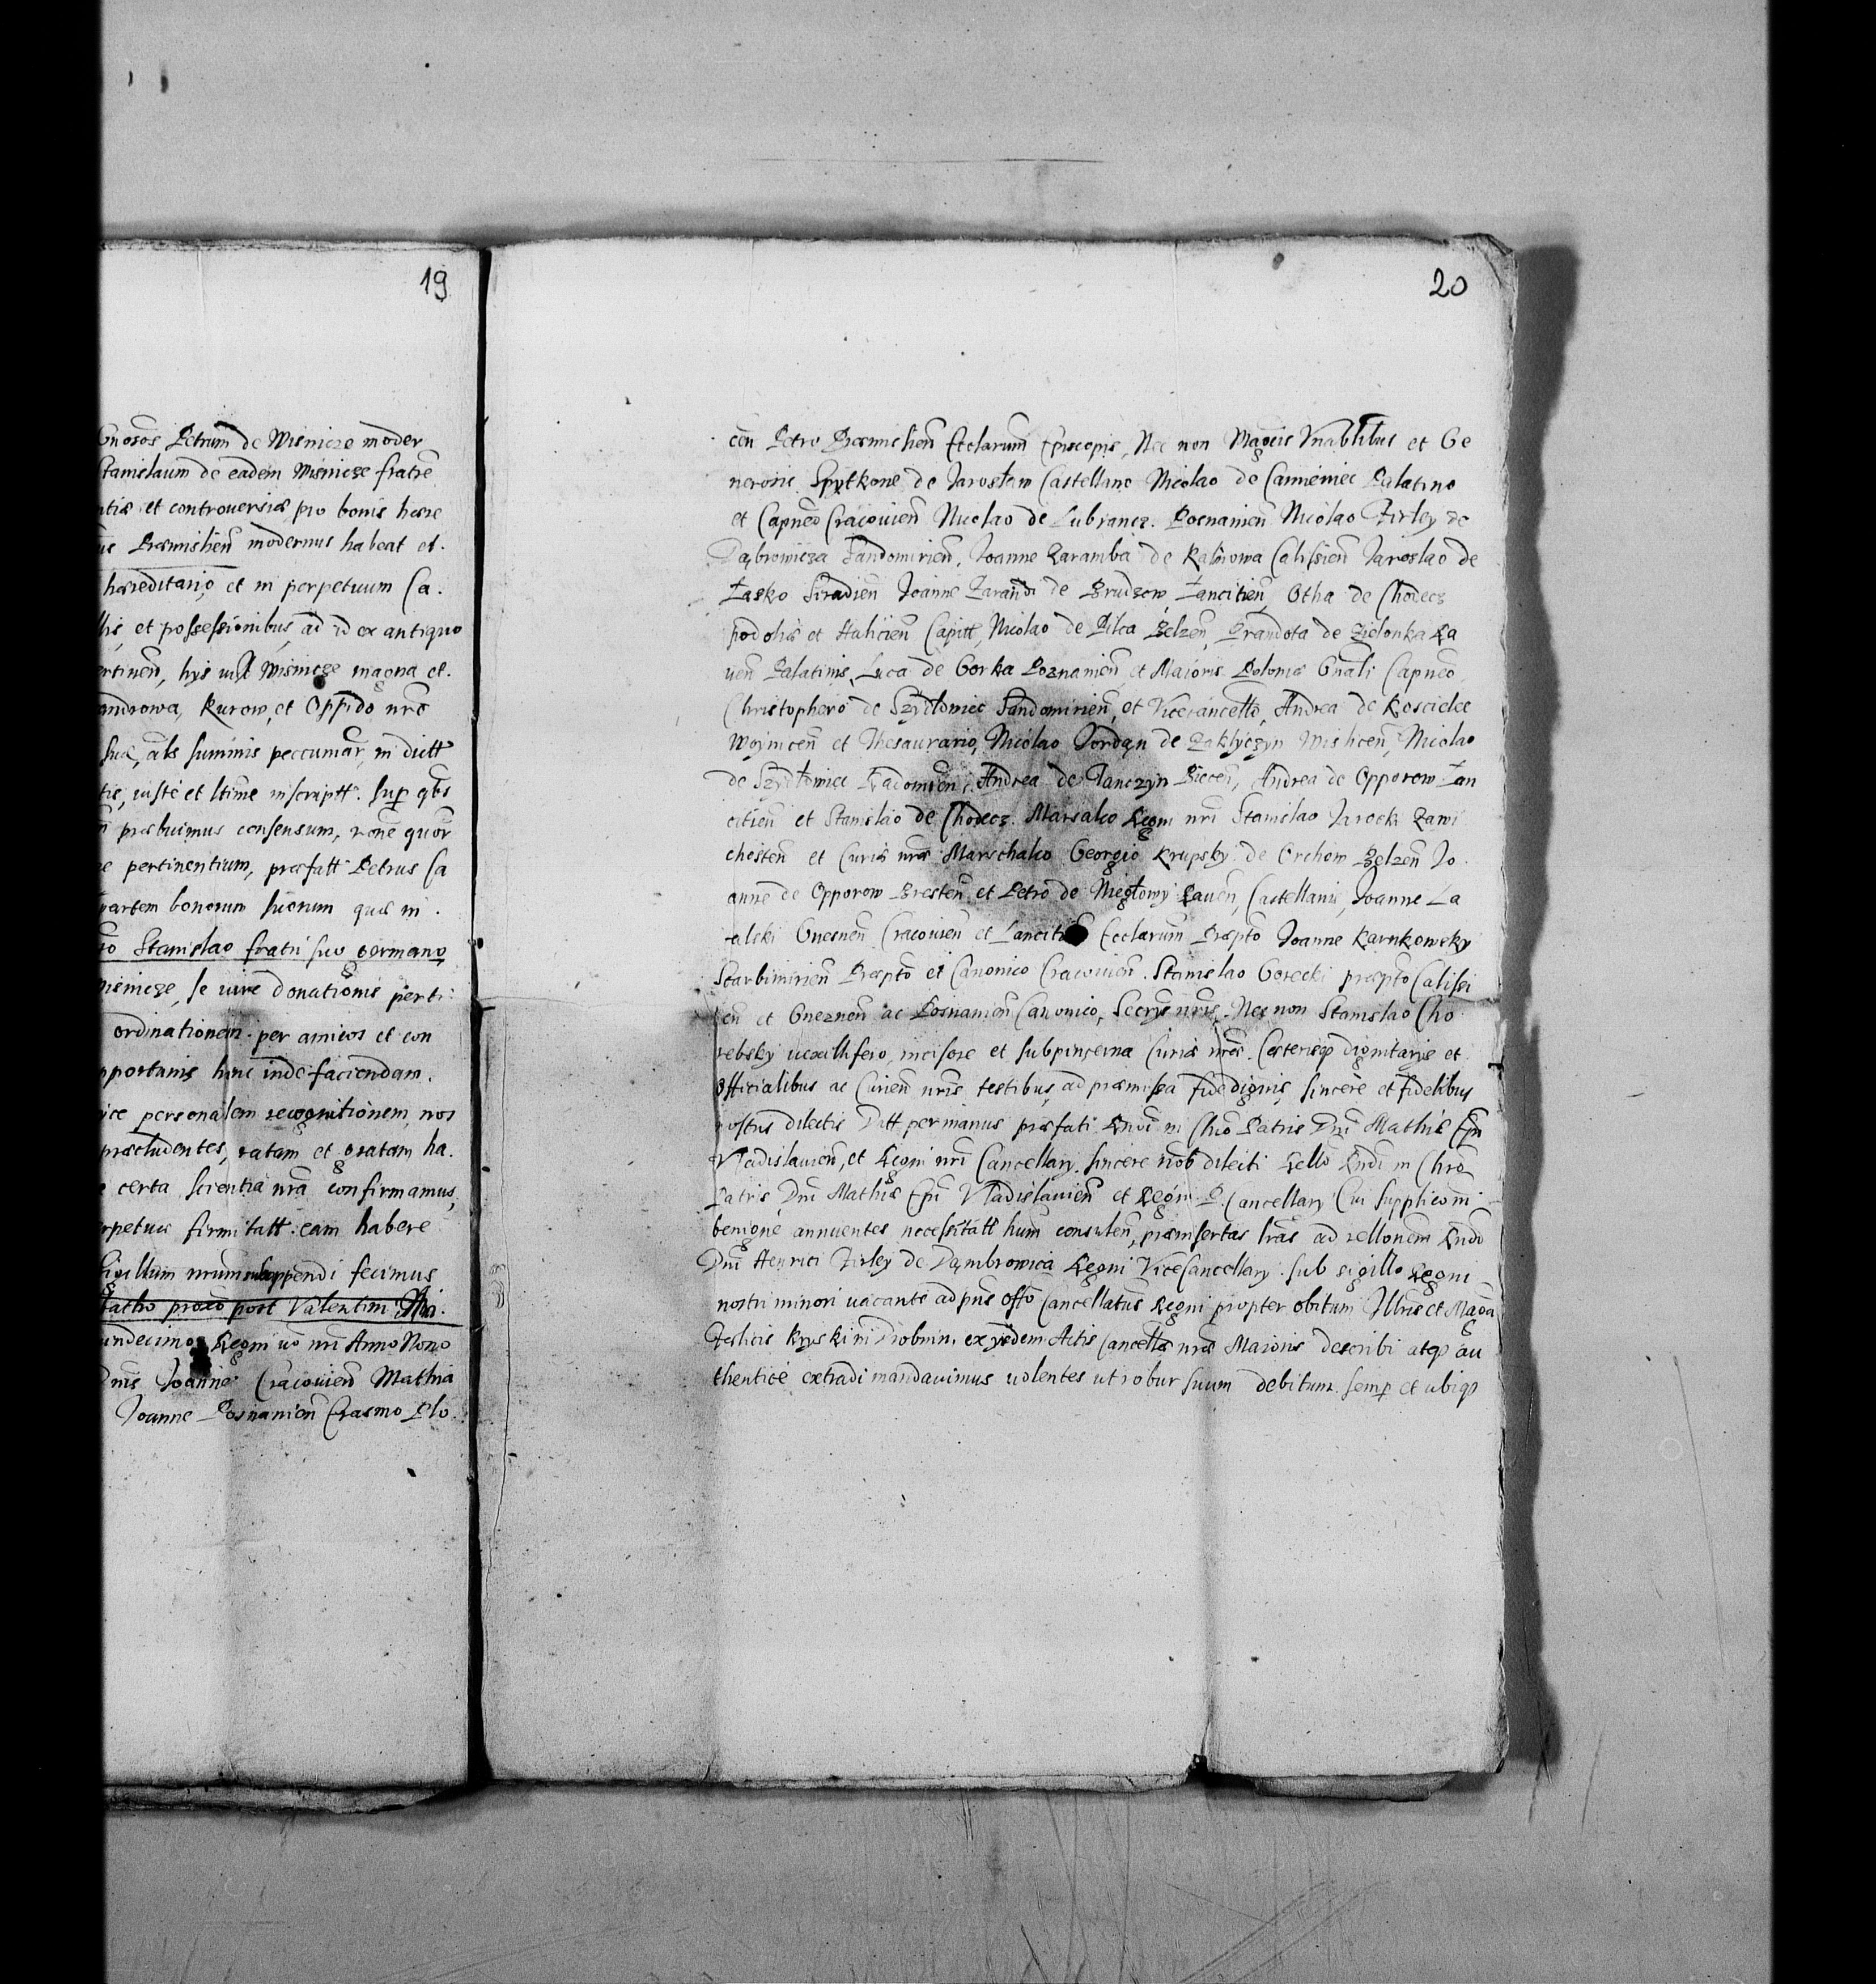 19
Gnosos Petrum de Wisnicze moder
Stanislaum de eadem Wisnicze fratrē
ntiæ et controversiæ pro bonis hære
Præmisliēn modernus habeat et.
hæreditario et in perpetuum Ca.
et possessionibus, ad id ex antiquo
Wisnicze magna et.
androwa, Kurow, et Oppido nrō
suæ, als summis peccuniar, in dictt
iuste et ltīme inscriptt. sup qbs
præbuimus consensum, rōne quor
e pertinentium, præfatt Petrus Ca
partem bonorum suorum quæ in.
ro Stanislao fratri suo germano,
Wisnicze, se vive donationis perti
ordinationem per amicos et con
pportanis hinc inde faciendam.
ice personalem recognitionem, nos
præcludentes, ratam et gratam ha.
e certa scientia nrā confirmamus,
rpetuæ firmitatt. eam habere
Sigillum nrum subappendi fecimus
proxō post Valentini
undecimo, Regni vō nri Anno Nono
Dnis Joanne Cracovień Mathia
Joanne Posnaniēn Erasmo Plo.
20
cēn Petro Præmisliēn Ecclarum Episcopis, Nec non Magcis Vnablibus et Ge
nerosis Spytkone de Jarosław Castellano Nicolao de Camieniec Palatino
et Capnēo Cracouiēn Nicolao de Lubrancz. Posnaniēn Nicolao Firley de
Dąbrowicza Sandomiriēn, Joanne Zaramba de Kalinowa Calissiēn Jaroslao de
Łasko Siradiēn Joanne Zaramba de Grudzow, Łancitiēn, Otha de Chodecz
podoliæ et Haliciēn Capitt, Nicolao de Pilca Belzēn, Prandota de Zielonka Ra
uēn Palatinis, Luca de Gorka Poznaniēn et Maioris Poloniæ Gnāli Capnēo,
Christophero de Szydłowiec Sandomiriēn, et Vicecancello, Andrea de Koscielec
Woynicēn et Thesaurario, Nicolao Jordan de Zakliczyn Wislicēn, Nicolao
de Szydłowiec Radomiēn, Andrea de Tanczyn Biecēn, Andrea de Opporow Łan
citiēn et Stanislao de Chodecz. Marsalco Regni nri Stanislao Jarocki Zawi
chostēn et Curiæ nræ Marschalco Georgio Krupsky. de Orchow Belzēn Jo
anne de Opporow Brestēn et Petro de Rauēn, Castellanis, Joanne La
alski Gnesnēn Cracouiēn et Ecclarum Præpto Joanne Karnkowsky
Scarbimiriēn Præptō et Canonico Cracouiēn. Stanislao Gorecki præptō Calissi
ēn et Gneznēn ac Posnaniēn Canonico, Secrijs nris, Nec non Stanislao Cho
rebsky uexillifero, incisore et subpincerna Curiæ nræ. Cæterisq dignitarijs et
officialibus ac Curiēn nris testibus, ad præmissa fide dignis, sincere et fidelibus
nostris dilectis Datt per manus præfati Rndi in Chrō Patris Dni Mathiæ Epi
Vladislauiēn, et Regni nri Cancellary. sincere nob dilecti Rellō Rndi in Chrō
Patris Dni Mathiæ Epi Vladislauiēn et Regni P. Cancellary Cui supplicōni
benigne annuentes necessitatt huic consulēn, præinsertas lras ad rellonem Rndi
Dni Henrici Firley de Dąmbrowica Regni Vice Cancellary. sub sigillo Regni
nostri minori vacante ad pns offō Cancellatus Regni propter obitum Illris et Magci
Felicis Kryski in Drobnin, ex ijsdem Actis Cancellæ nræ Maioris describi atq au
thenticè extradi mandauimus uolentes ut robur suum debitum. semp et ubiq